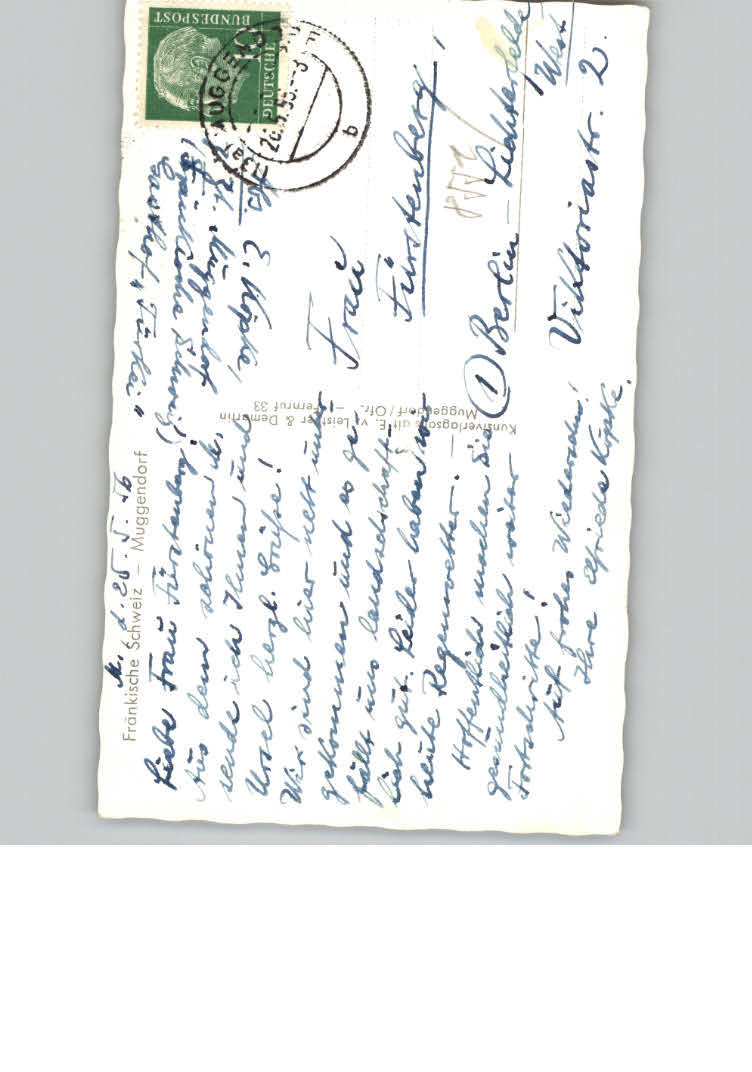 Fränkische Schweiz – Muggendorf
M., d. 25. 5.
Liebe Frau Fürstenberg,
Aus dem schönen
sende ich Ihnen und
Ursel herzl. Grüße!
Wir sind hier nett unter-
gekommen und es ge-
fällt uns landschaft-
lich gut. Leider haben wir
heute Regenwetter.
Hoffentlich machen Sie
gesundheitlich weiter
Fortschritte!
Auf frohes Wiedersehn!
Ihre Elfriede Köpke.
Abs. E. Köpke,
Muggendorf
(Fränkische Schweiz)
Gasthof „Türkei"
Kunstverlagsanstalt E. v. Leistner & Demartin
Muggendorf/Ofr. – Fernruf 33
DEUTSCHE
BUNDESPOST
10
MUGGENDORF
b
Frau
Fürstenberg,
1 Berlin – Lichterfelde
West
Viktoriastr. 2.